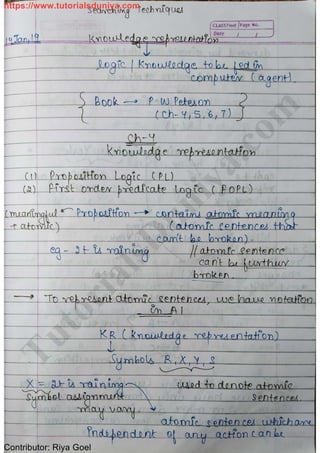 https://www.tutorialsduniva.com
Searching Techniques
Classmate Page No.
Date / /
19 Jan, 19
Knowledge representation
↓
logic / Knowledge to be fed in
computer (agent).
{ Book → P-W Peterson
(Ch-4, 5, 6, 7) }
Ch-4
Knowledge representation
(1) Proposition Logic (PL)
(2) First order predicate logic (FOPL)
(meaningful + atomic) ← Proposition → contains atomic meaning
(atomic sentences that
can't be broken).
eg- It is raining // atomic sentence
can't be further
broken.
→ To represent atomic sentences, we have notation
in AI
KR (knowledge representation)
↓
Symbols R, X, Y, S
X = It is raining used to denote atomic
Symbol assignment sentences.
may vary.
atomic sentences which are
Independent of any action can be
TutorialsDuniya.com
Contributor: Riya Goel